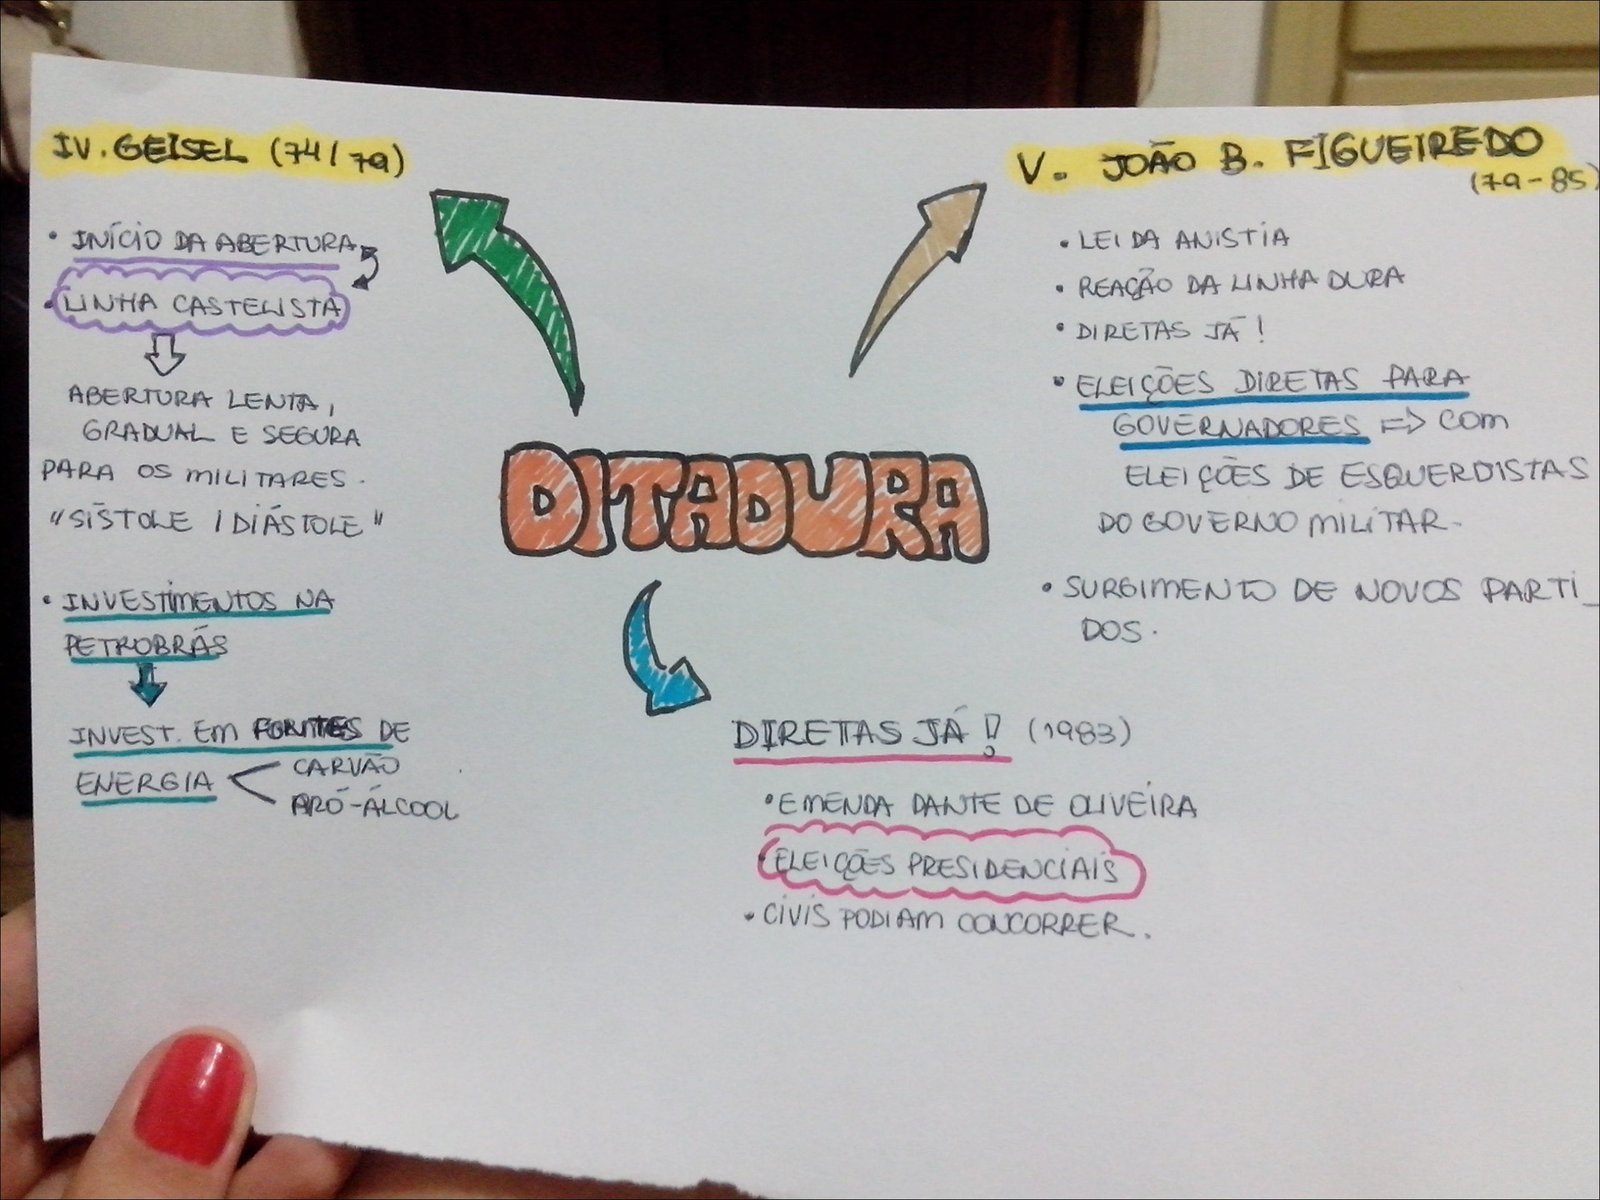 IV. GEISEL (74/79)
• INÍCIO DA ABERTURA
• LINHA CASTELISTA
ABERTURA LENTA,
GRADUAL E SEGURA
PARA OS MILITARES.
"SÍSTOLE / DIÁSTOLE"
• INVESTIMENTOS NA
PETROBRÁS
INVEST. EM FONTES DE
ENERGIA
CARVÃO
PRÓ-ÁLCOOL
DITADURA
V. JOÃO B. FIGUEIREDO
(79-85)
• LEI DA ANISTIA
• REAÇÃO DA LINHA DURA
• DIRETAS JÁ!
• ELEIÇÕES DIRETAS PARA
GOVERNADORES => COM
ELEIÇÕES DE ESQUERDISTAS
DO GOVERNO MILITAR.
• SURGIMENTO DE NOVOS PARTI_
DOS.
DIRETAS JÁ! (1983)
• EMENDA DANTE DE OLIVEIRA
• ELEIÇÕES PRESIDENCIAIS
• CIVIS PODIAM CONCORRER.